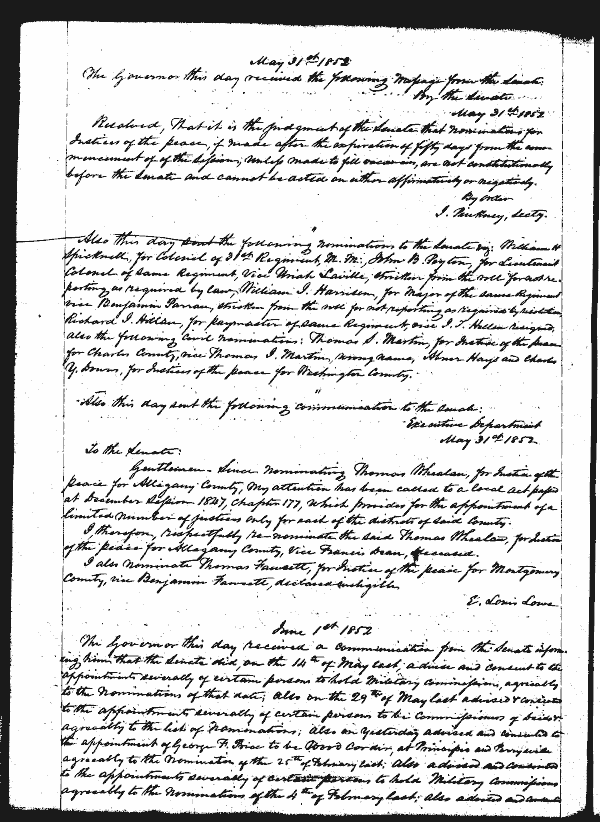 May 31st 1852
The Governor this day received the following Message from the Senate.
By the Senate
May 31st 1852
Resolved, That it is the judgment of the Senate that nominations for
Justices of the peace, if made after the expiration of fifty days from the com-
mencement of of the session, unless made to fill vacancies, are not constitutionally
before the Senate and cannot be acted on either affirmatively or negatively.
By order
J. Pinkney, Secty.
"
Also this day sent the following nominations to the Senate viz: William H
Spicknell, for Colonel of 31st Regiment, M. M., John B. Peyton, for Lieutenant
Colonel of same Regiment, Vice Uriah Laville, stricken from the roll for not re-
porting as required by law, William J. Harrison, for Major of the same Regiment
vice Benjamin Farran, stricken from the roll for not reporting as required by
Richard J. Hillen, for paymaster of same Regiment, vice J. T. Hillen resigned,
also the following Civil nominations: Thomas S. Martin, for Justice of the peace
for Charles County, vice Thomas J. Martin, wrong name, Abner Hays and Charles
Y. Downs, for Justices of the peace for Washington County.
"
Also this day sent the following communication to the Senate:
Executive Department
May 31st 1852
To the Senate:
Gentlemen - Since nominating Thomas Whealan, for Justice of the
peace for Allegany County, my attention has been called to a local act passed
at December Session 1847, Chapter 177, which provides for the appointment of a
limited number of justices only, for each of the districts of said County.
I therefore, respectfully re-nominate the said Thomas Whealan, for Justice
of the peace for Allegany County, Vice Francis Dean, deceased.
I also nominate Thomas Fawsett, for Justice of the peace for Montgomery
County, vice Benjamin Fawsett, declared ineligible.
E. Louis Lowe
June 1st 1852
The Governor this day received a communication from the Senate inform-
ing him that the Senate did, on the 14th of May last, advise and consent to the
appointments severally of certain persons to hold Military Commission, agreeably
to the Nominations of that date; Also on the 29th of May last advised & consented
to the appointments severally of certain persons to be Commissioners of deeds &c
agreeably to the list of Nominations; Also on Yesterday advised and consented to
the appointment of George P. Price to be Wood Corder, at Principio and Perryville
agreeably to the Nomination of the 25th of February last; Also advised and consented
to the appointments severally of certain persons to hold Military Commissions
agreeably to the Nominations of the 4th of February last; Also advised and consented